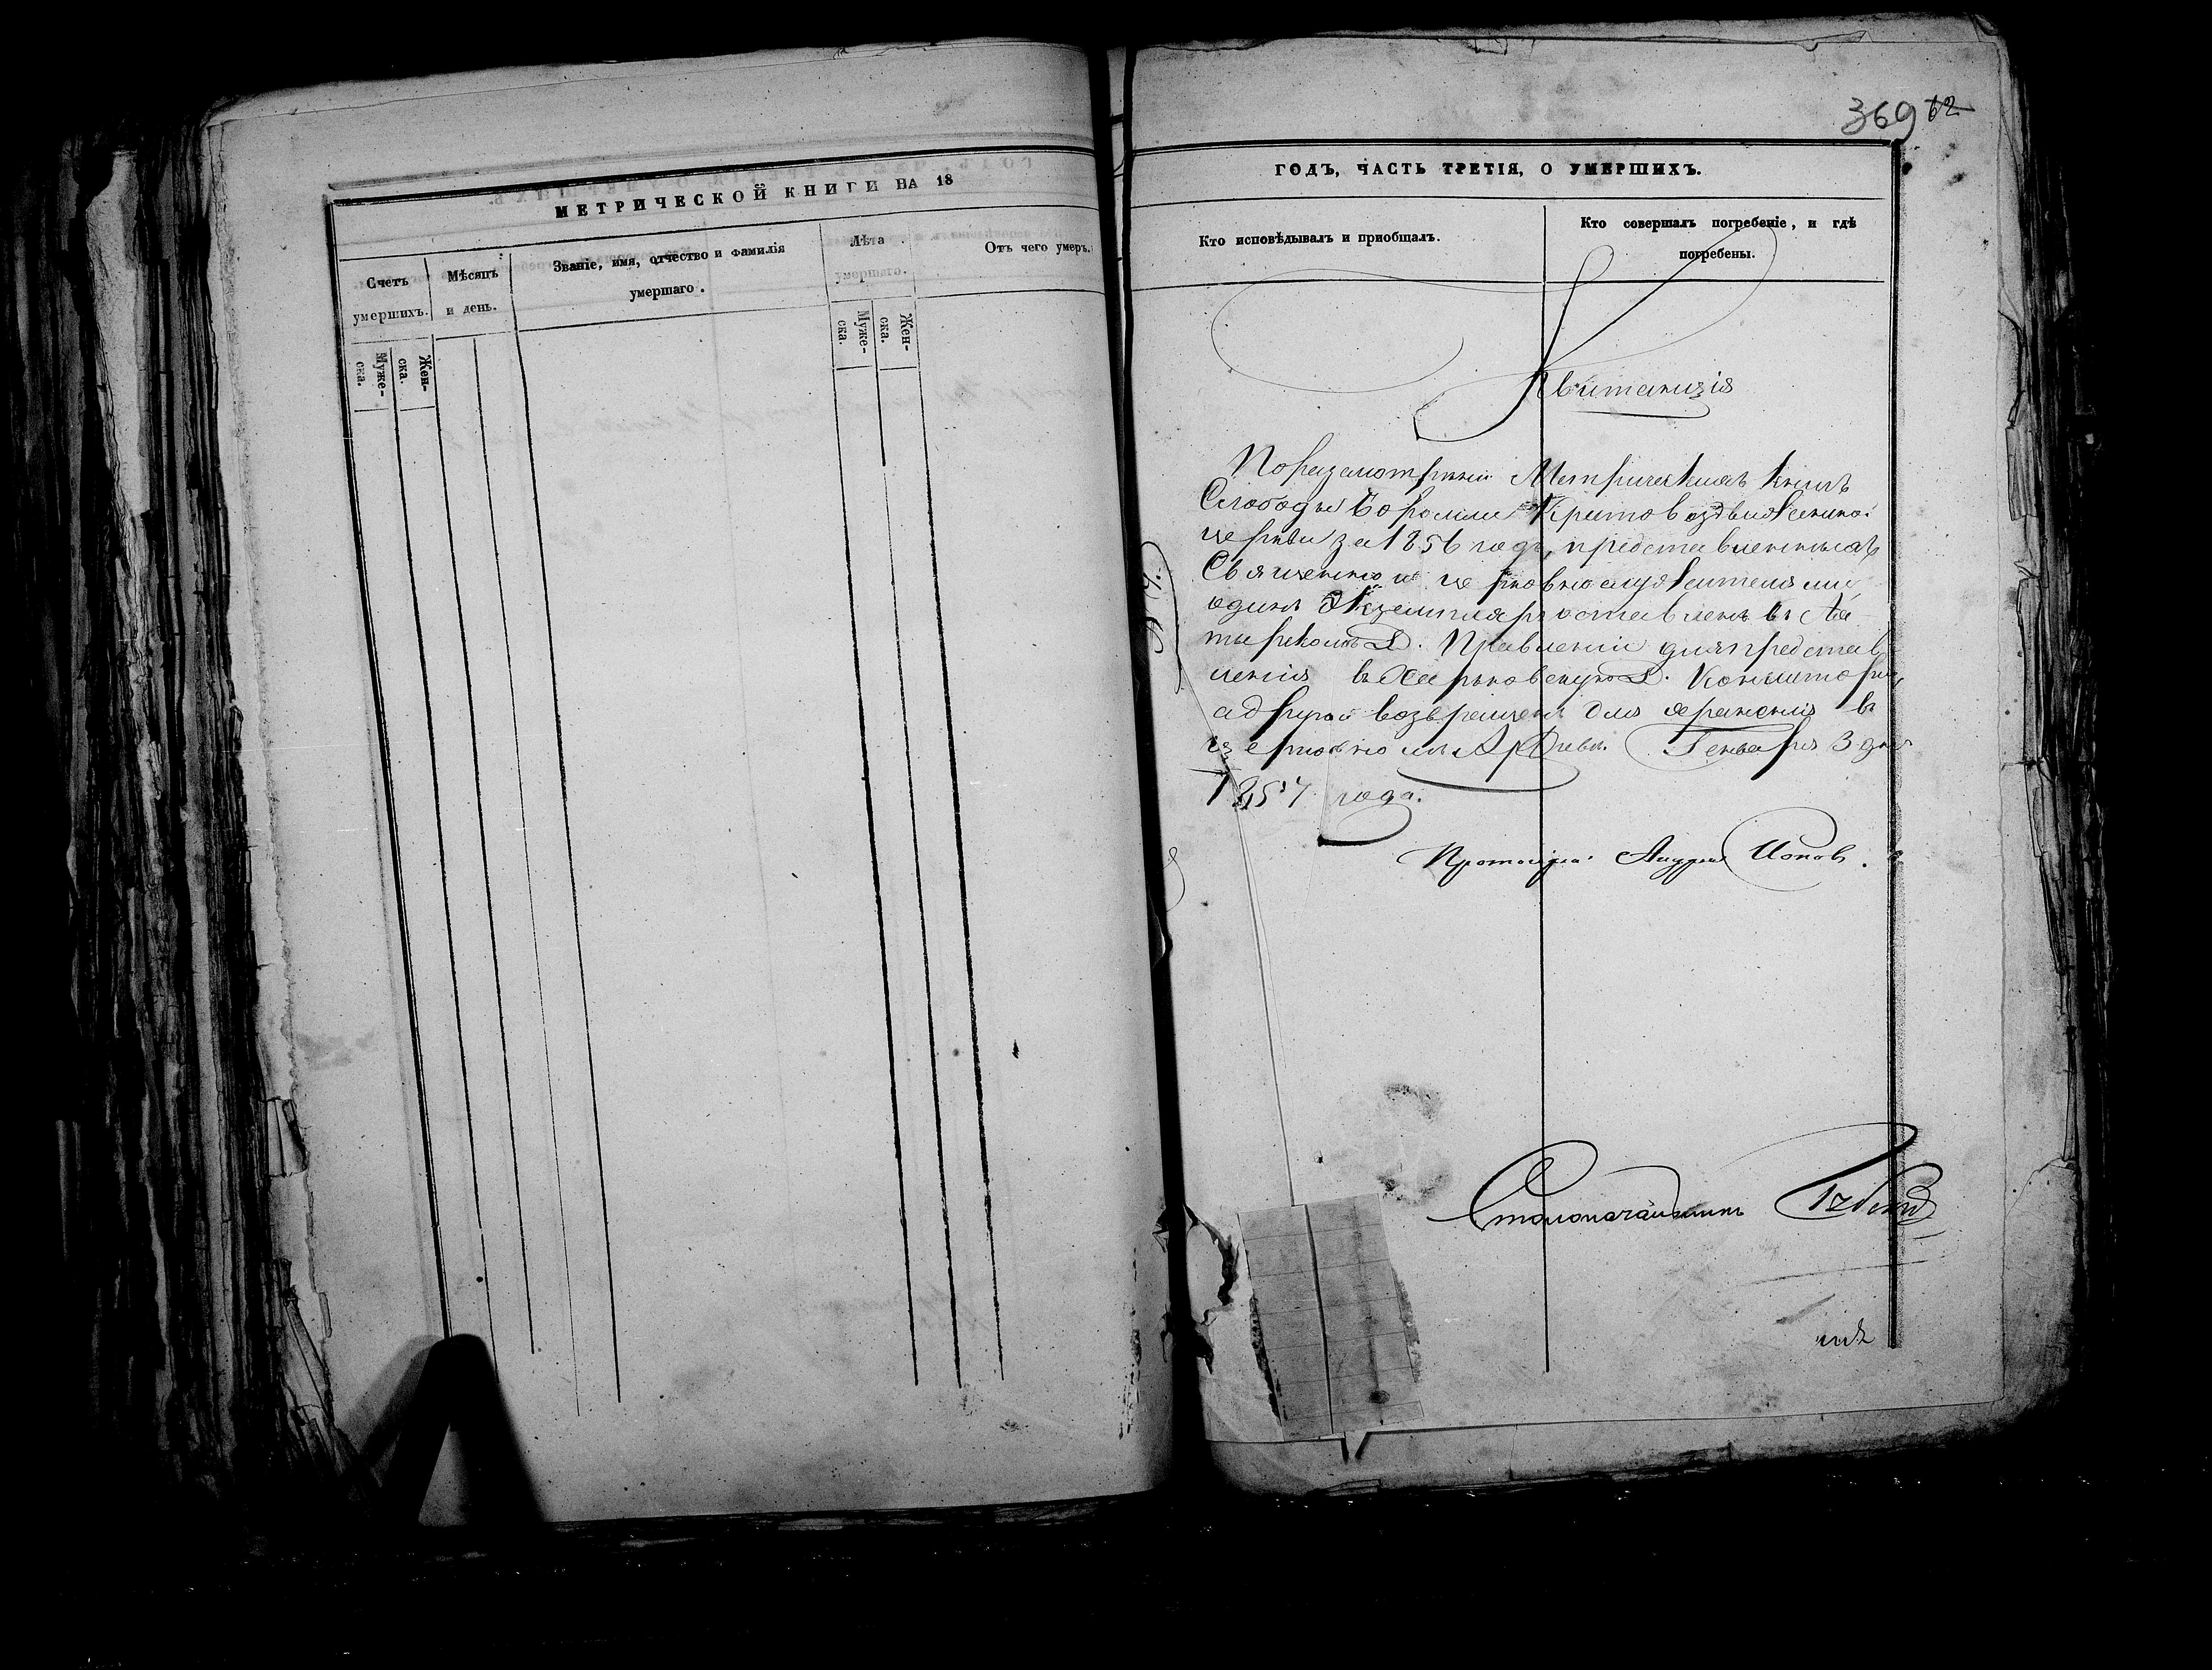 МЕТРИЧЕСКОЙ КНИГИ НА 18
Счетъ умершихъ.
Муже-ска.
Жен-ска.
Мѣсяцъ и день.
Званіе, имя, отчество и фамилія умершаго.
Лѣта умершаго.
Муже-ска.
Жен-ска.
Отъ чего умеръ.
369 62
ГОДЪ, ЧАСТЬ ТРЕТІЯ, О УМЕРШИХЪ.
Кто исповѣдывалъ и пріобщалъ.
Кто совершалъ погребеніе, и гдѣ
погребены.
Квитанція
По разсмотрѣнии Метрическихъ Книгъ
Слободы Боромли Крестовоздвиженской
церкви за 1856 годъ, представленныхъ
Священно и церковнослужителями
одинъ Экземпляръ оставленъ въ Ах-
тырскомъ Д. Правленіи для представ
ленія въ Харьковскую Д. Консисторію,
а другой возвращенъ для храненія въ
церковномъ Архивѣ. Генваря 3 дня
1857 года.
Протоіерей Андрей Поповъ.
Столоначальникъ